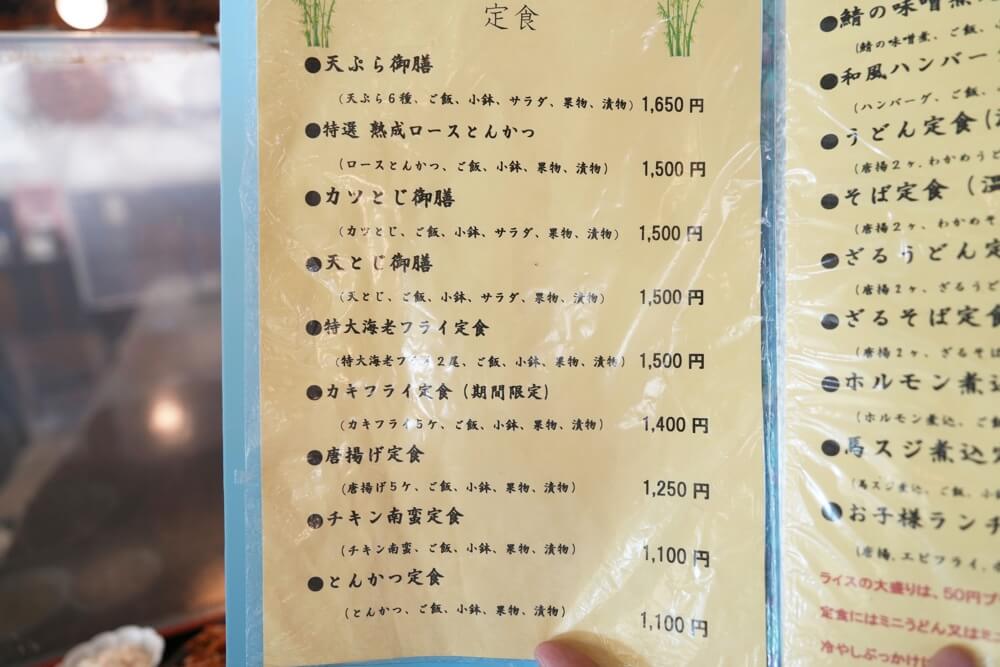 定食
●天ぷら御膳
(天ぷら6種、ご飯、小鉢、サラダ、果物、漬物) 1,650円
●特選 熟成ロースとんかつ
(ロースとんかつ、ご飯、小鉢、果物、漬物) 1,500円
●カツとじ御膳
(カツとじ、ご飯、小鉢、サラダ、果物、漬物) 1,500円
●天とじ御膳
(天とじ、ご飯、小鉢、サラダ、果物、漬物) 1,500円
●特大海老フライ定食
(特大海老フライ2尾、ご飯、小鉢、果物、漬物) 1,500円
●カキフライ定食(期間限定)
(カキフライ5ケ、ご飯、小鉢、果物、漬物) 1,400円
●唐揚げ定食
(唐揚げ5ケ、ご飯、小鉢、果物、漬物) 1,250円
●チキン南蛮定食
(チキン南蛮、ご飯、小鉢、果物、漬物) 1,100円
●とんかつ定食
(とんかつ、ご飯、小鉢、果物、漬物) 1,100円
●鯖の味噌煮
(鯖の味噌煮、ご飯、
●和風ハンバー
(ハンバーグ、ご飯、
●うどん定食(
(唐揚2ヶ、わかめうど
●そば定食(温
(唐揚2ヶ、わかめそ
●ざるうどん定
(唐揚2ヶ、ざるうど
●ざるそば定食
(唐揚2ヶ、ざるそば
●ホルモン煮込
(ホルモン煮込、ご飯
●馬スジ煮込定
(馬スジ煮込、ご飯、小
●お子様ランチ
(唐揚、エビフライ、
ライスの大盛りは、50円プ
定食にはミニうどん又はミニ
冷やしぶっかけ